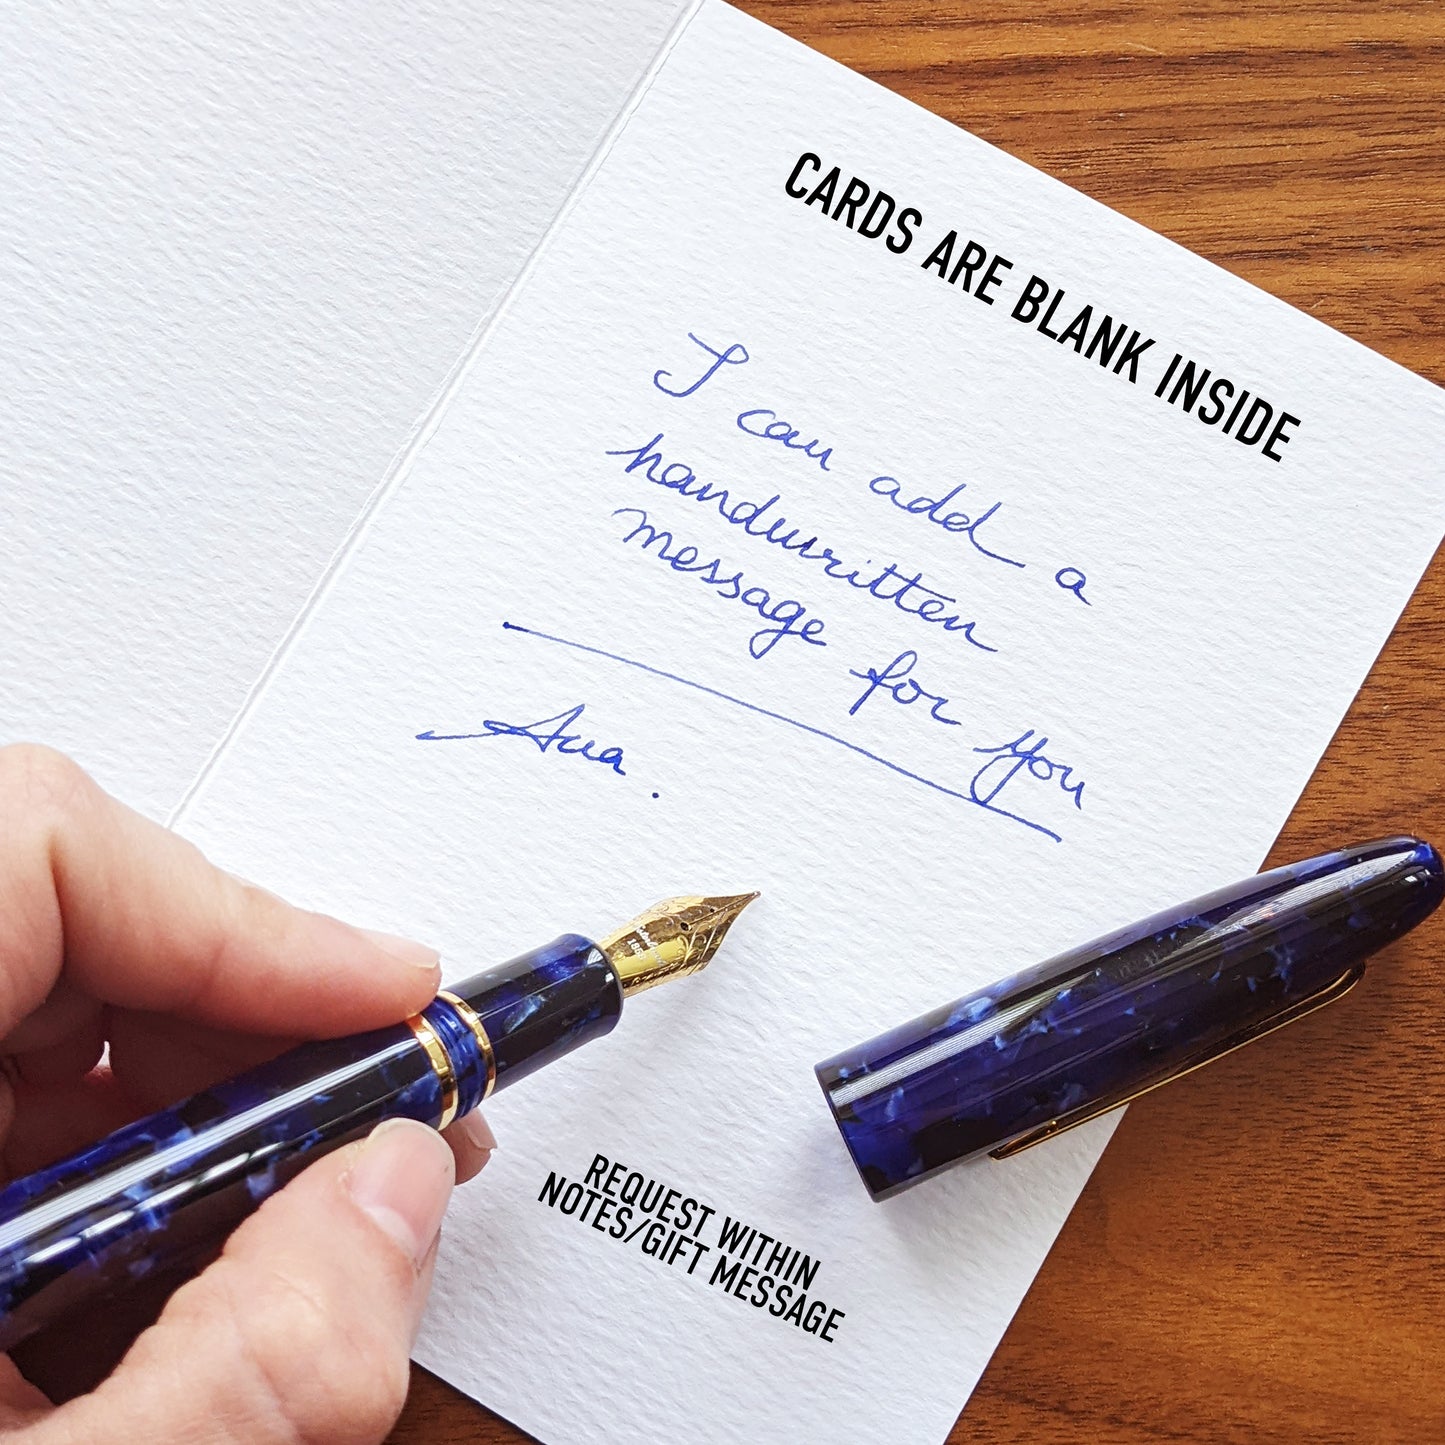 CARDS ARE BLANK INSIDE
I can add a
handwritten
message for you
Ana.
1868
REQUEST WITHIN
NOTES/GIFT MESSAGE